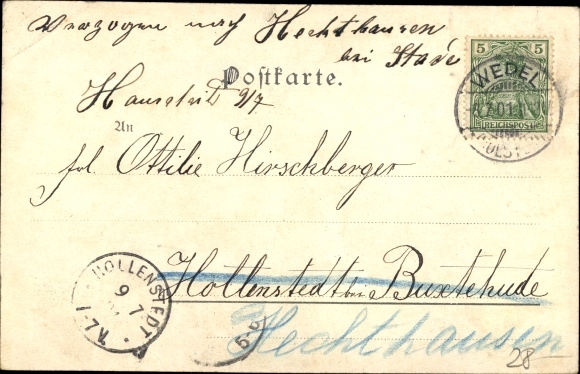 Verzogen nach Hechthausen
bei Stade
Postkarte.
9/7
An
frl. Ottilie Hirschberger
Hollenstedt bei Buxtehude
Hechthausen
28-
5 5
REICHSPOST
WEDEL
7.01
HOLLENSTEDT
9
7